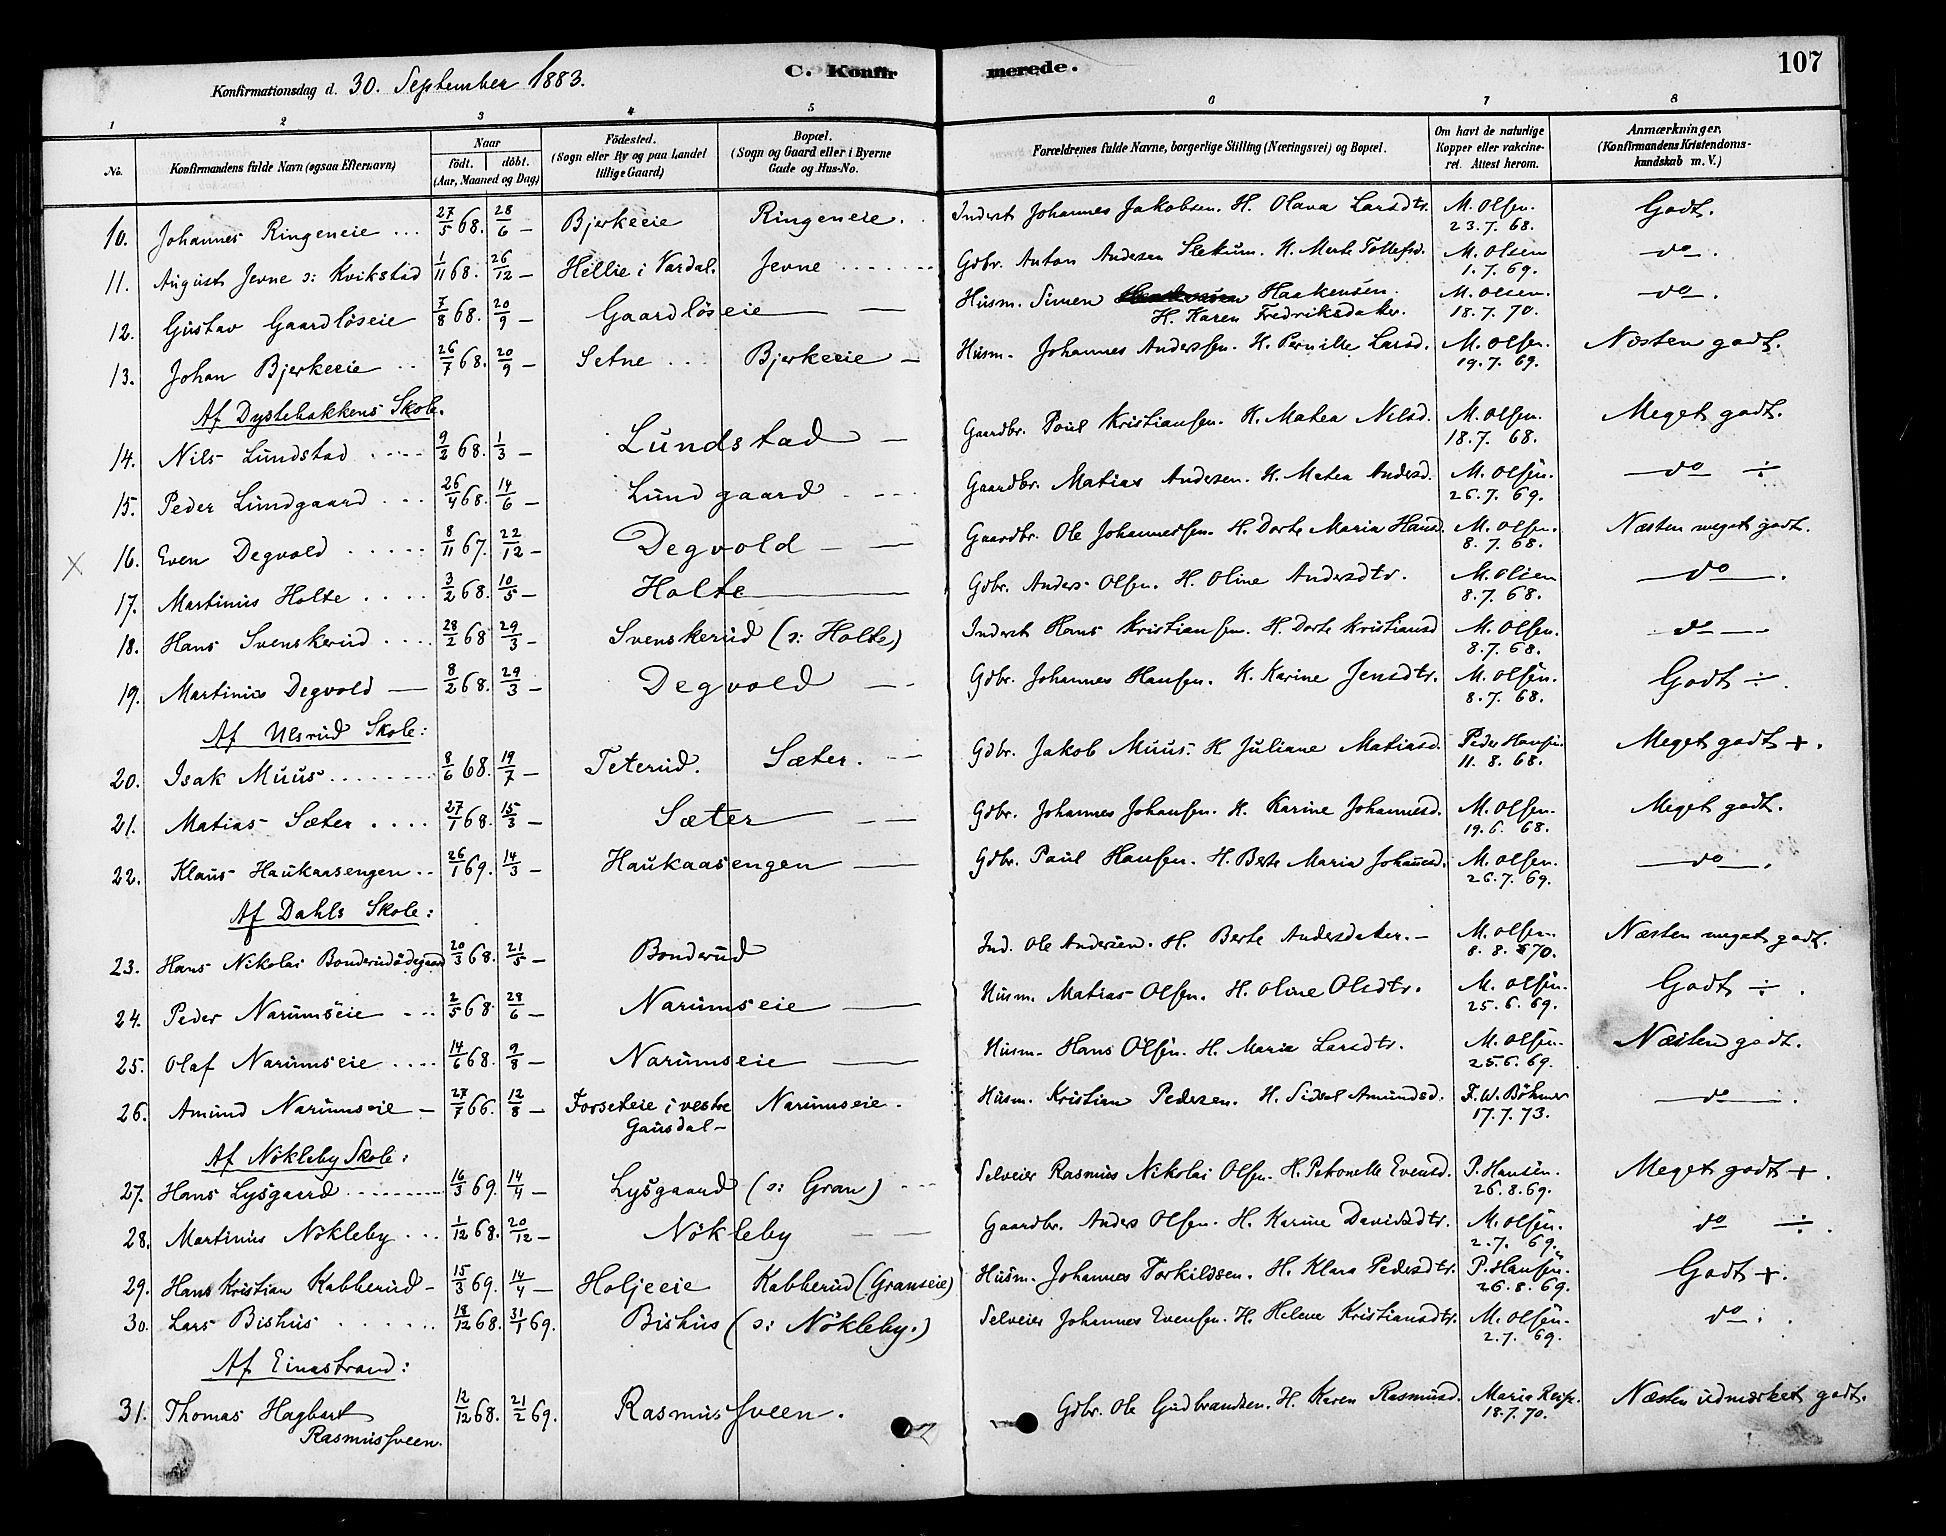 C. Konfirmerede. 107
Konfirmationsdag d. 30. September 1883.
1 2 3 4 5 6 7 8
No. Konfirmandens fulde Navn (ogsaa Efternavn) Naar födt. döbt. (Aar, Maaned og Dag) Födested. (Sogn eller By og paa Landet tillige Gaard) Bopæl. (Sogn og Gaard eller i Byerne Gade og Hus-No. Forældrenes fulde Navne, borgerlige Stilling (Næringsvei) og Bopæl. Om havt de naturlige Kopper eller vakcineret. Attest herom. Anmærkninger. (Konfirmandens Kristendomskundskab m. V.)
10. Johannes Ringeneie ... 27/5 68. 28/6 — Bjerkeeie Ringeneie. Inderst Johannes Jakobsen. H. Olava Larsdtr. M. Olsen. 23.7.68. Godt.
11. August Jevne ɔ: Kvikstad 1/11 68. 26/12 — Hellie i Vardal. Jevne ...... Gdbr. Anton Andersen Slekum. H. Marte Tollefsd. M. Olsen 1.7.69. do.
12. Gustav Gaardlöseie 7/8 68. 20/9 — Gaardlöseie — Husm. Simen Haakensen. H. Karen Fredriksdater. M. Olsen. 18.7.70. do.
13. Johan Bjerkeeie .. 26/7 68. 20/9 — Setne ... Bjerkeeie — Husm. Johannes Anderssen. H. Pernille Larsd. M. Olsen. 19.7.69. Næsten godt.
Af Dystebakkens Skole.
14. Nils Lundstad ..... 9/2 68. 1/3 — Lundstad — Gaardbr. Poul Kristiansen. H. Matea Nilsd. M. Olsen. 18.7.68. Meget godt.
15. Peder Lundgaard ... 26/4 68. 14/6 — Lundgaard ... Gaardbr. Matias Andersen. H. Matea Andersd. M. Olsen. 26.7.69. — do — ÷
X 16. Even Degvold ..... 8/11 67. 22/12 — Degvold — — Gaardbr. Ole Johannessen. H. Dorte Maria Hansd. M. Olsen. 8.7.68. Næsten meget godt.
17. Martinus Holte .... 3/2 68. 10/5 — Holte — Gdbr. Anders Olsen. H. Oline Andersdtr. M. Olsen 8.7.68. — do —.
18. Hans Svenskerud .... 28/2 68 29/3 — Svenskerud (ɔ: Holte) Inderst Hans Kristiansen. H. Dorte Kristiansd M. Olsen. 8.7.68. — do —
19. Martinius Degvold — 8/2 68. 29/3 — Degvold — — Gdbr. Johannes Hansen. H. Karine Jensdtr. M. Olsen. 8.7.68. Godt ÷.
Af Ulsrud Skole:
20. Isak Muus ........ 8/6 68. 19/7 — Teterud. Sæter. — Gdbr. Jakob Muus. H Juliane Matiasd. Peder Hansen. 11.8.68. Meget godt +.
21. Matias Sæter .... 27/1 68. 15/3 — Sæter — — Gdbr. Johannes Johansen. H. Karine Johannesd. M. Olsen. 19.6.68. Meget godt.
22. Klaus Haukaasengen .. 26/1 69. 14/3 — Haukaasengen — Gdbr. Paul Hansen. H. Berte Maria Johannesd. M. Olsen. 26.7.69. — do —.
Af Dahls Skole:
23. Hans Nikolai Bonderudödegaard 20/3 68. 21/5 — Bonderud Ind. Ole Andersen. H. Berte Andersdater. — M. Olsen. 8.8.70. Næsten meget godt.
24. Peder Narumseie ... 2/5 68. 28/6 — Narumseie — Husm. Matias Olsen. H. Oline Olsdtr. M. Olsen. 25.6.69. Godt ÷.
25. Olaf Narumseie .... 14/6 68. 9/8 — Narumseie — Husm. Hans Olsen. H. Maria Larsdtr. M. Olsen. 25.6.69. Næsten godt.
26. Amund Narumseie — 27/7 66. 12/8 — Forseteie i vestre Gausdal — Narumseie. Husm. Kristian Pedersen. H. Sidsel Amundsd. F. W. Böhmer 17.7.73. — do —.
Af Nökleby Skole:
27. Hans Lysgaard ........ 16/3 69. 14/4 — Lysgaard (ɔ: Gran) ... Selveier Rasmus Nikolai Olsen. H. Petronelle Evensd. P. Hansen. 26.8.69. Meget godt +.
28. Martinus Nökleby ... 1/12 68. 20/12 — Nökleby — — Gaardbr. Anders Olsen. H. Karine Davidsdtr. M. Olsen. 2.7.69. do ÷.
29. Hans Kristian Kabberud — 15/3 69. 14/4 — Holjeeie Kabberud (Granseie) Husm. Johannes Torkildsen. H. Klara Pedersdtr. P. Hansen. 26.8.69. Godt +.
30. Lars Bishus ...... 18/12 68. 31/1 69. Bishus (ɔ: Nökleby.) Selveier Johannes Evensen. H. Helene Kristiansdtr. M. Olsen. 2.7.69. do.
Af Einastrand:
31. Thomas Hagbart Rasmussveen. 12/12 68. 21/2 69. Rasmussveen. Gdbr. Ole Gudbrandsen. H. Karen Rasmusd. Maria 18.7.70. Næsten udmærket godt.